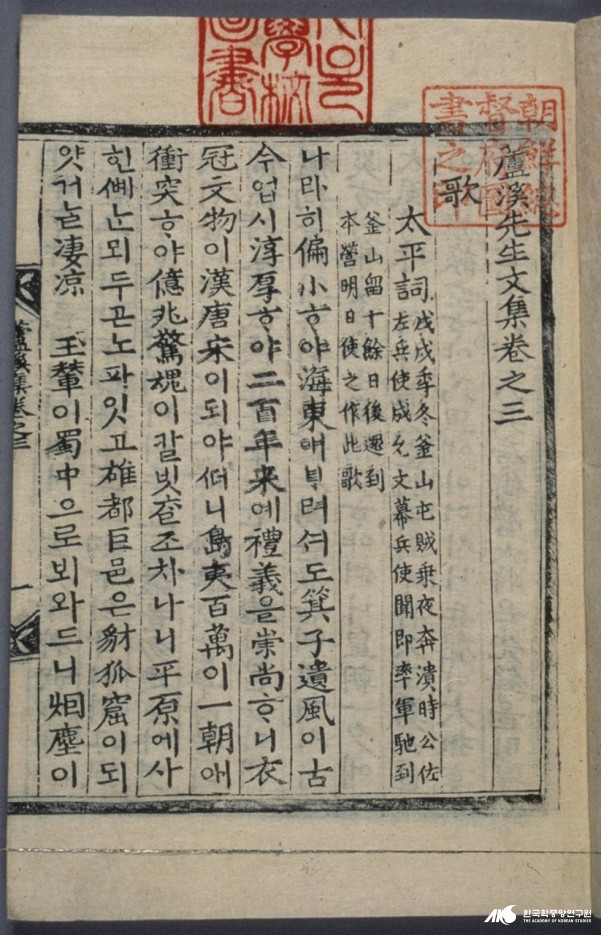 蘆溪先生文集卷之三
歌
太平詞 戊戌季冬釜山屯賊乘夜奔潰時公佐
左兵使成允文幕兵使聞卽率軍馳到
釜山留十餘日後還到
本營明日使之作此歌
나라히偏小ᄒᆞ야海東애ᄇᆞ려셔도箕子遺風이古
今업시淳厚ᄒᆞ야二百年来예禮義을崇尚ᄒᆞ니衣
冠文物이漢唐宋이되야ᄯᅥ니島夷百萬이一朝애
衝突ᄒᆞ야億兆驚魂이칼빗ᄎᆞᆯ조차나니平原에사
힌ᄲᅧᄂᆞᆫ뫼두곤노파잇고雄都巨邑은豺狐窟이되
얏거ᄂᆞᆯ凄凉 玉輦이蜀中으로뵈와드니烟塵이
蘆溪集卷之三
一
朝鮮總
督府圖
書之印
學校
圖書
한국학중앙연구원
THE ACADEMY OF KOREAN STUDIES